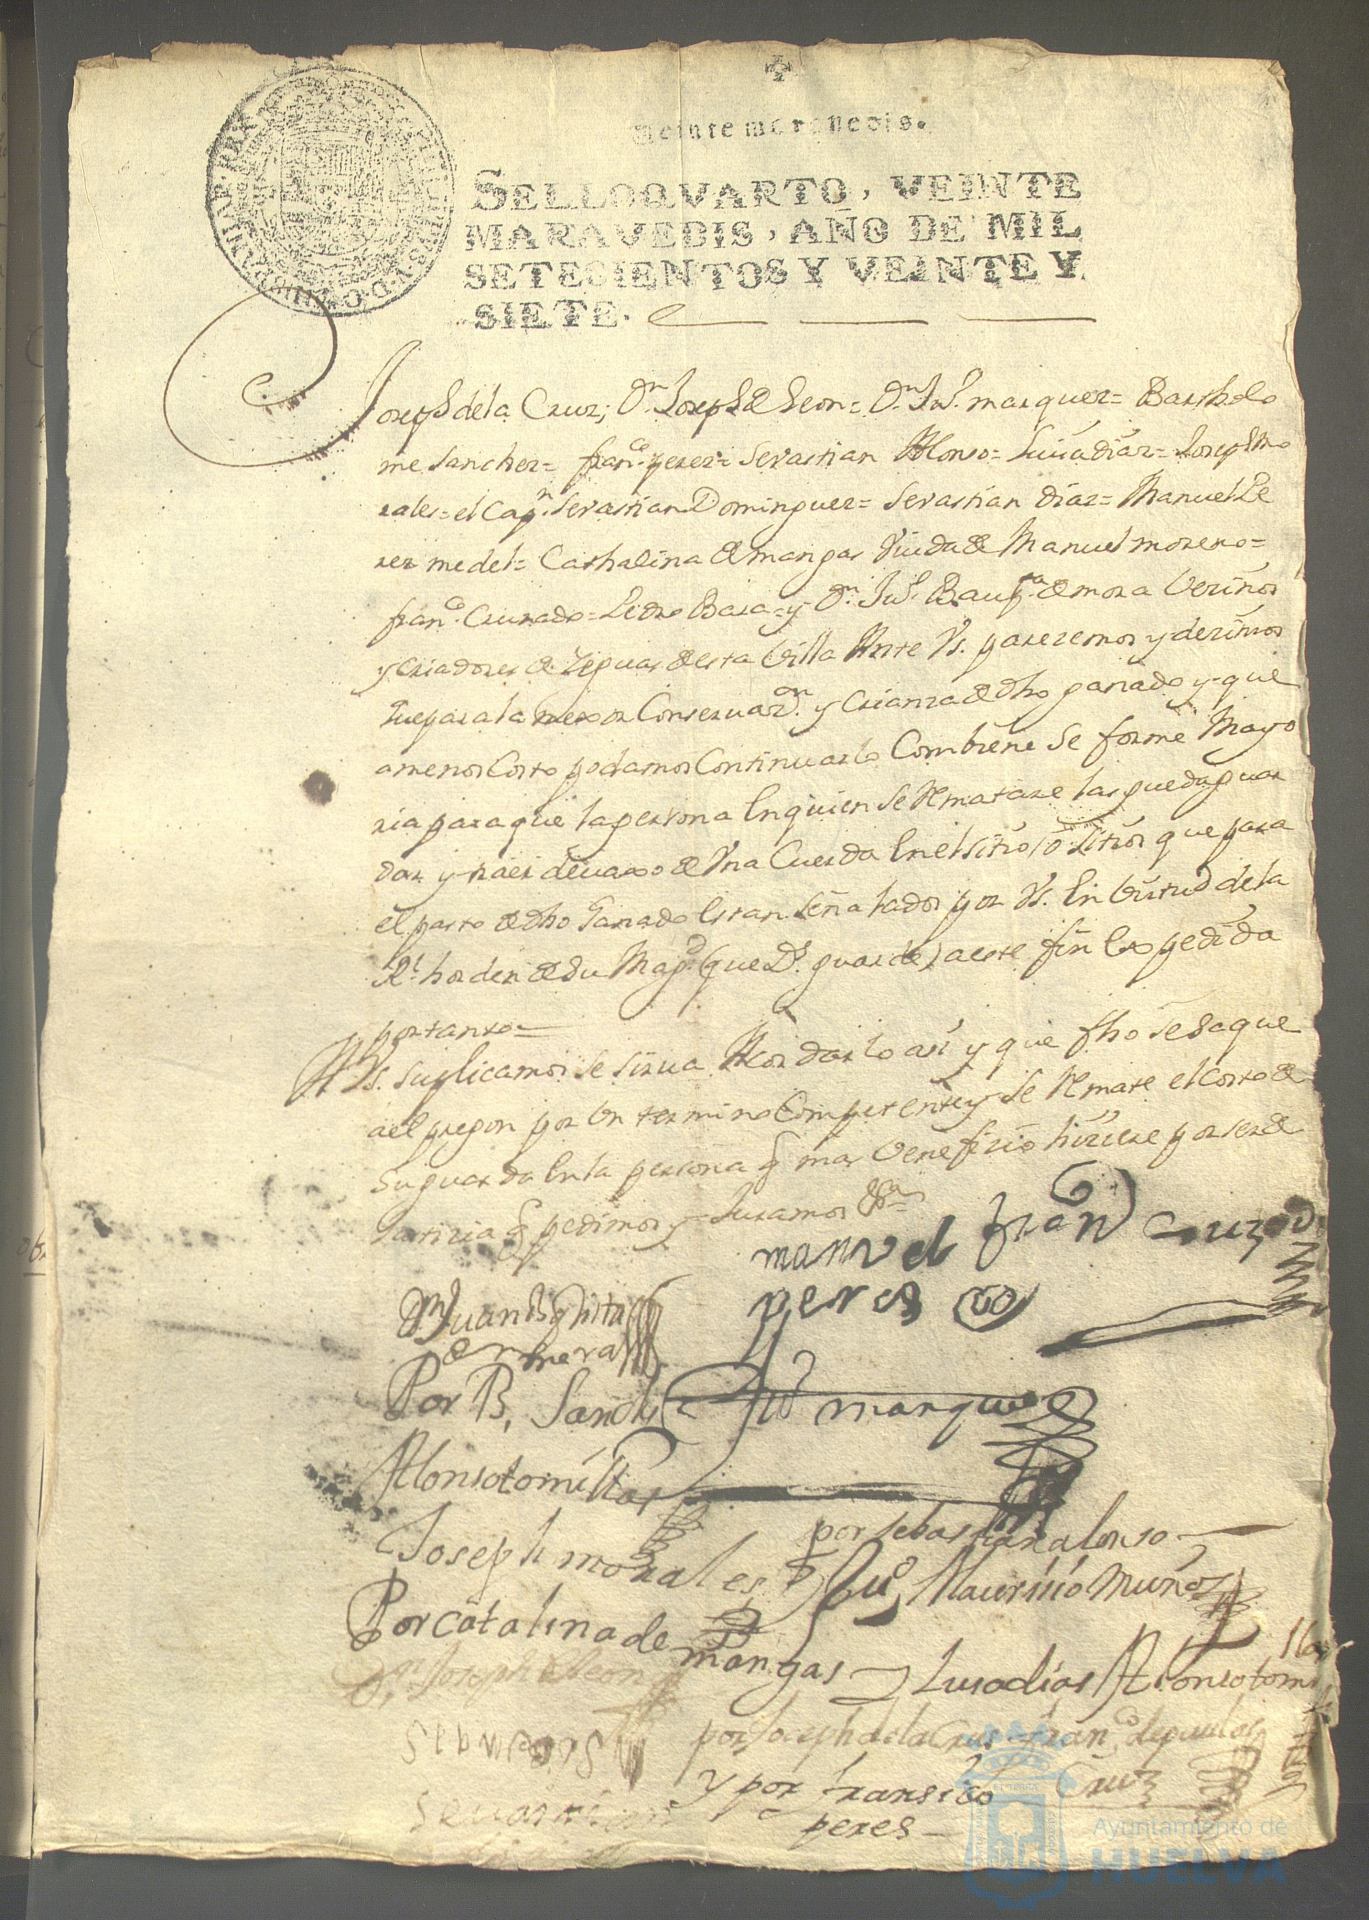 Veinte maravedis.
SELLO QVARTO, VEINTE
MARAVEDIS, AÑO DE MIL
SETECIENTOS Y VEINTE Y
SIETE.
Joseph de la Cruz; Dn. Joseph de Leon= Dn. Juo. marquez= Bartholo
me sanchez= franco. perez= Sevastian Alonso= Luca diaz= Joseph Mo
rales= el Capn. Sevastian Dominguez= Sevastian diaz= Manuel Pe
rez medel= Cathalina de mangas Viuda de Manuel moreno=
franco. Cruzado= Pedro Baza= y Dn. Juo. Bauta. de mora Vezinos
y criadores de Yeguas de esta Villa Ante Vs. parezemos y dezimos
que para la mexor Conservazon. y crianza de dho ganado y que
a menos Costo podamos Continuarlo Combiene se forme Mayo
ria para que la persona en quien se Rematare las pueda guar
dar y traer devaxo de Vna Cuerda en el sitio, o sitios que para
el pasto de dho Ganado estan señalados por Vs. en virtud de la
Rl. horden de su Magd. (que Ds. guarde) a este fin expedida
por tanto=
A Vs. suplicamos se sirva Acordarlo asi y que fho se saque
a el pregon por Un termino Competente y se Remate el costo de
su guarda en la persona q mas Veneficio hiziere por ser de
Justizia q pedimos y Juramos &a=
manuel franco Cruzado
perez
Dn Juan Baptista
de mora
Por B, Sanches Juo marquez
Alonso tomillar
por sebastian alonso
Joseph morales Juo, Mauricio Muñoz
Por catalina de
mangas Lucas dias Alonso tomi
llar
Dn. Joseph de Leon
por Joseph de la Crus fran,co de paula
Cruz
y por fransisco
peres
Ayuntamiento de
HUELVA